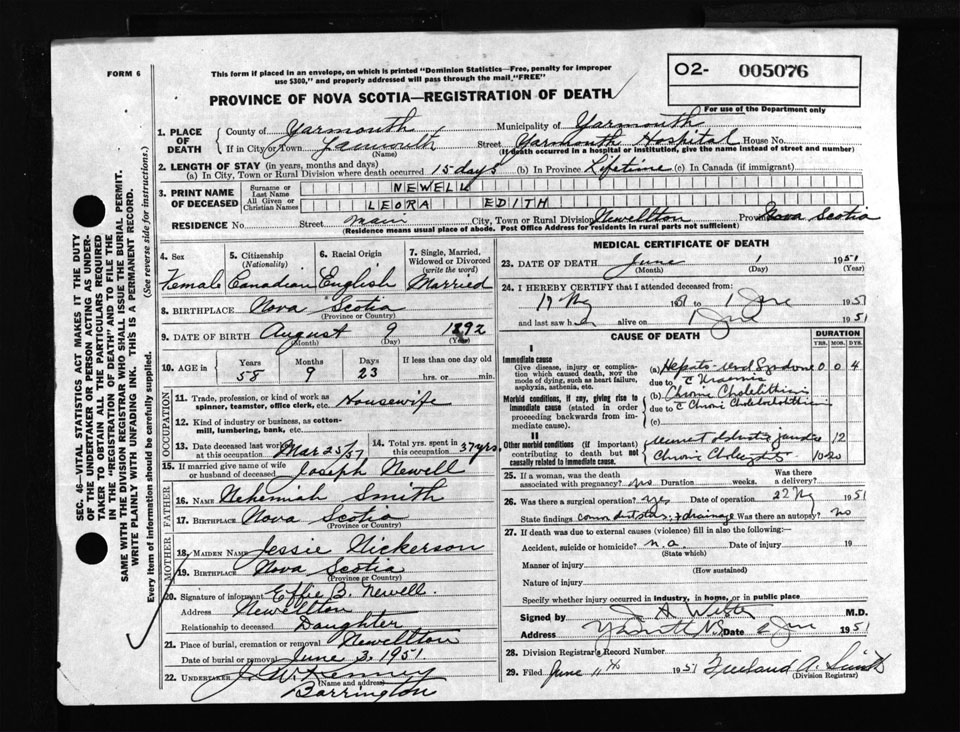 FORM 6
This form if placed in an envelope, on which is printed "Dominion Statistics—Free, penalty for improper
use $300," and properly addressed will pass through the mail "FREE"
O2- 005076
PROVINCE OF NOVA SCOTIA—REGISTRATION OF DEATH
For use of the Department only
1. PLACE OF DEATH { County of Yarmouth Municipality of Yarmouth
If in City or Town Yarmouth (Name) Street Yarmouth Hospital House No.
(If death occurred in a hospital or institution, give the name instead of street and number)
2. LENGTH OF STAY (in years, months and days)
(a) In City, Town or Rural Division where death occurred 15 days (b) In Province Lifetime (c) In Canada (if immigrant)
3. PRINT NAME OF DECEASED { Surname or Last Name NEWELL
All Given or Christian Names LEORA EDITH
RESIDENCE No. Street main City, Town or Rural Division Newellton Province Nova Scotia
(Residence means usual place of abode. Post Office Address for residents in rural parts not sufficient)
4. Sex
Female
5. Citizenship (Nationality)
Canadian
6. Racial Origin
English
7. Single, Married, Widowed or Divorced (write the word)
Married
8. BIRTHPLACE Nova Scotia
(Province or Country)
9. DATE OF BIRTH August 9 1892
(Month) (Day) (Year)
10. AGE in { Years Months Days If less than one day old
58 9 23 hrs. or min.
OCCUPATION
11. Trade, profession, or kind of work as spinner, teamster, office clerk, etc. Housewife
12. Kind of industry or business, as cotton-mill, lumbering, bank, etc.
13. Date deceased last worked at this occupation Mar 25/51
14. Total yrs. spent in this occupation 37 yrs.
15. If married give name of wife or husband of deceased Joseph Newell
FATHER
16. NAME Nehemiah Smith
17. BIRTHPLACE Nova Scotia
(Province or Country)
MOTHER
18. MAIDEN NAME Jessie Nickerson
19. BIRTHPLACE Nova Scotia
(Province or Country)
20. Signature of informant Effie B. Newell.
Address Newellton
Relationship to deceased Daughter
21. Place of burial, cremation or removal Newellton
Date of burial or removal June 3, 1951
22. UNDERTAKER J. W. Kenney
(Name and address)
Barrington
MEDICAL CERTIFICATE OF DEATH
23. DATE OF DEATH June 1 1951
(Month) (Day) (Year)
24. I HEREBY CERTIFY that I attended deceased from:
17 My 1951 to 1 June 1951
and last saw h alive on 1 June 1951
CAUSE OF DEATH
DURATION
YRS. MOS. DYS.
I
Immediate cause
Give disease, injury or complication which caused death, NOT the mode of dying, such as heart failure, asphyxia, asthenia, etc.
(a) Hepato-renal Syndrome 0 0 4
due to c Uraemia
Morbid conditions, if any, giving rise to immediate cause (stated in order proceeding backwards from immediate cause).
(b) Chronic Cholelithiasis
due to c Chronic
(c)
II
Other morbid conditions (if important) contributing to death but not causally related to immediate cause.
jaundice 12
Chronic Cholecystitis 10-20
25. If a woman, was the death associated with pregnancy? no Duration weeks. Was there a delivery?
26. Was there a surgical operation? yes Date of operation 22 My 1951
State findings & drainage Was there an autopsy? no
27. If death was due to external causes (violence) fill in also the following:—
Accident, suicide or homicide? n.a. Date of injury 19
(State which)
Manner of injury
(How sustained)
Nature of injury
Specify whether injury occurred in industry, in home, or in public place
Signed by M.D.
Address Date 2 June 1951
28. Division Registrar's Record Number
29. Filed June 11th 1951 A. Smith
(Division Registrar)
SEC. 46—VITAL STATISTICS ACT MAKES IT THE DUTY
OF THE UNDERTAKER OR PERSON ACTING AS UNDER-
TAKER TO OBTAIN ALL THE PARTICULARS REQUIRED
IN THE "REGISTRATION OF DEATH" AND TO FILE THE
SAME WITH THE DIVISION REGISTRAR WHO SHALL ISSUE THE BURIAL PERMIT.
WRITE PLAINLY WITH UNFADING INK. THIS IS A PERMANENT RECORD.
Every item of information should be carefully supplied. (See reverse side for instructions.)